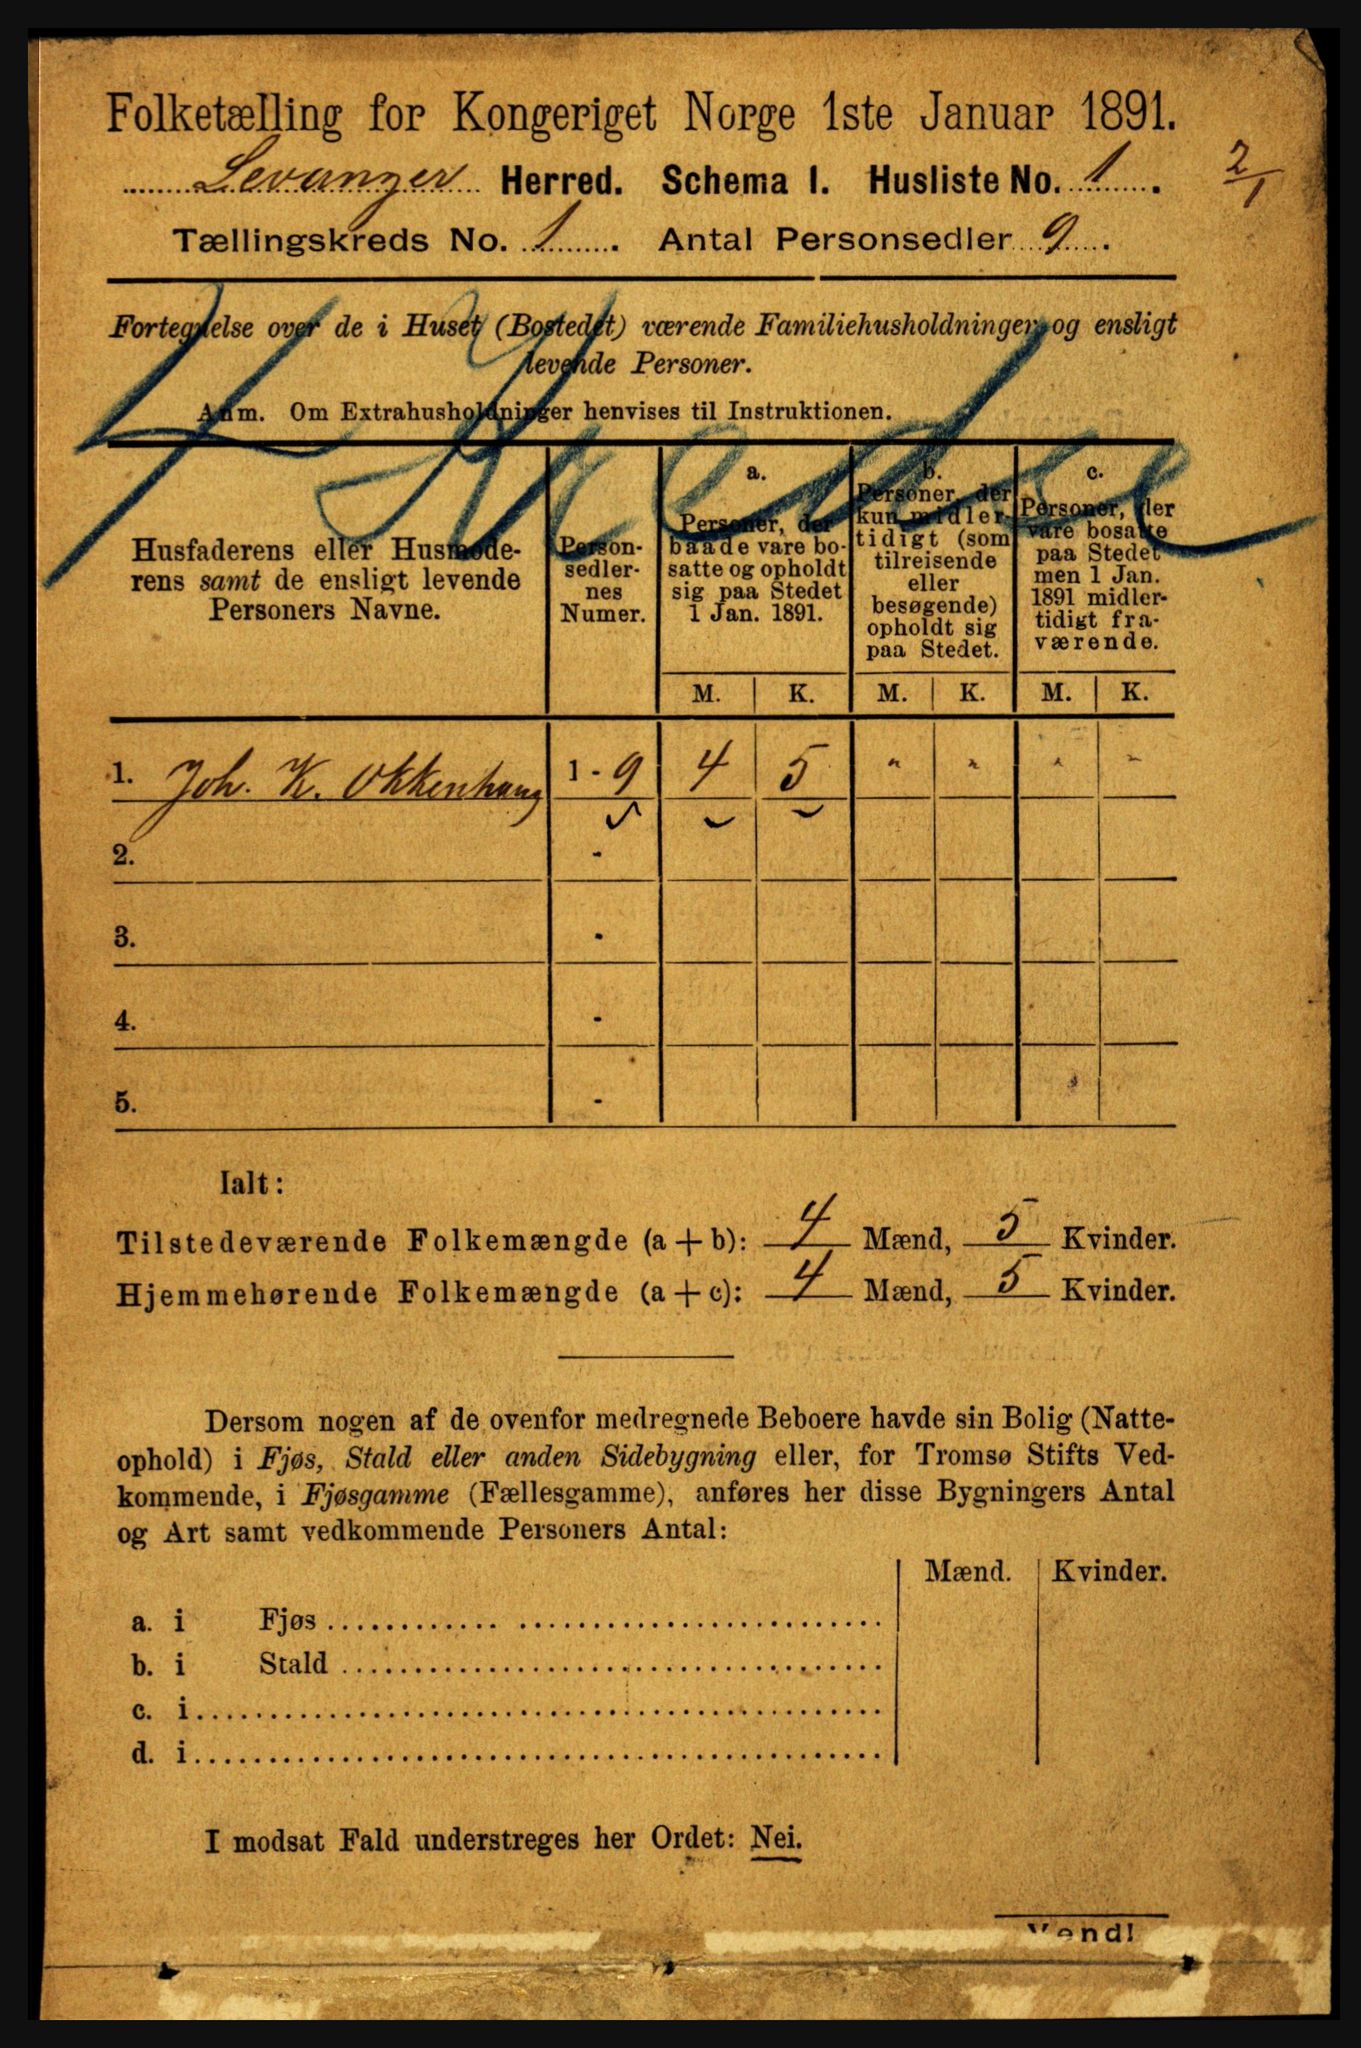 Folketælling for Kongeriget Norge 1ste Januar 1891.
Levanger Herred. Schema I. Husliste No. 1.
2/1
Tællingskreds No. 1. Antal Personsedler 9.
Fortegnelse over de i Huset (Bostedet) værende Familiehusholdninger og ensligt
levende Personer.
Anm. Om Extrahusholdninger henvises til Instruktionen.
Husfaderens eller Husmode-
rens samt de ensligt levende
Personers Navne.
Person-
sedler-
nes
Numer.
a.
Personer, der
baade vare bo-
satte og opholdt
sig paa Stedet
1 Jan. 1891.
b.
Personer, der
kun midler-
tidigt (som
tilreisende
eller
besøgende)
opholdt sig
paa Stedet.
c.
Personer, der
vare bosatte
paa Stedet
men 1 Jan.
1891 midler-
tidigt fra-
værende.
M. K. M. K. M. K.
1. Joh. K. Okkenhaug 1 - 9 4 5 " " " "
2. -
3. -
4. -
5. -
Ialt:
Tilstedeværende Folkemængde (a + b): 4 Mænd, 5 Kvinder.
Hjemmehørende Folkemængde (a + c): 4 Mænd, 5 Kvinder.
Dersom nogen af de ovenfor medregnede Beboere havde sin Bolig (Natte-
ophold) i Fjøs, Stald eller anden Sidebygning eller, for Tromsø Stifts Ved-
kommende, i Fjøsgamme (Fællesgamme), anføres her disse Bygningers Antal
og Art samt vedkommende Personers Antal:
Mænd. Kvinder.
a. i Fjøs
b. i Stald
c. i
d. i
I modsat Fald understreges her Ordet: Nei.
Vend!